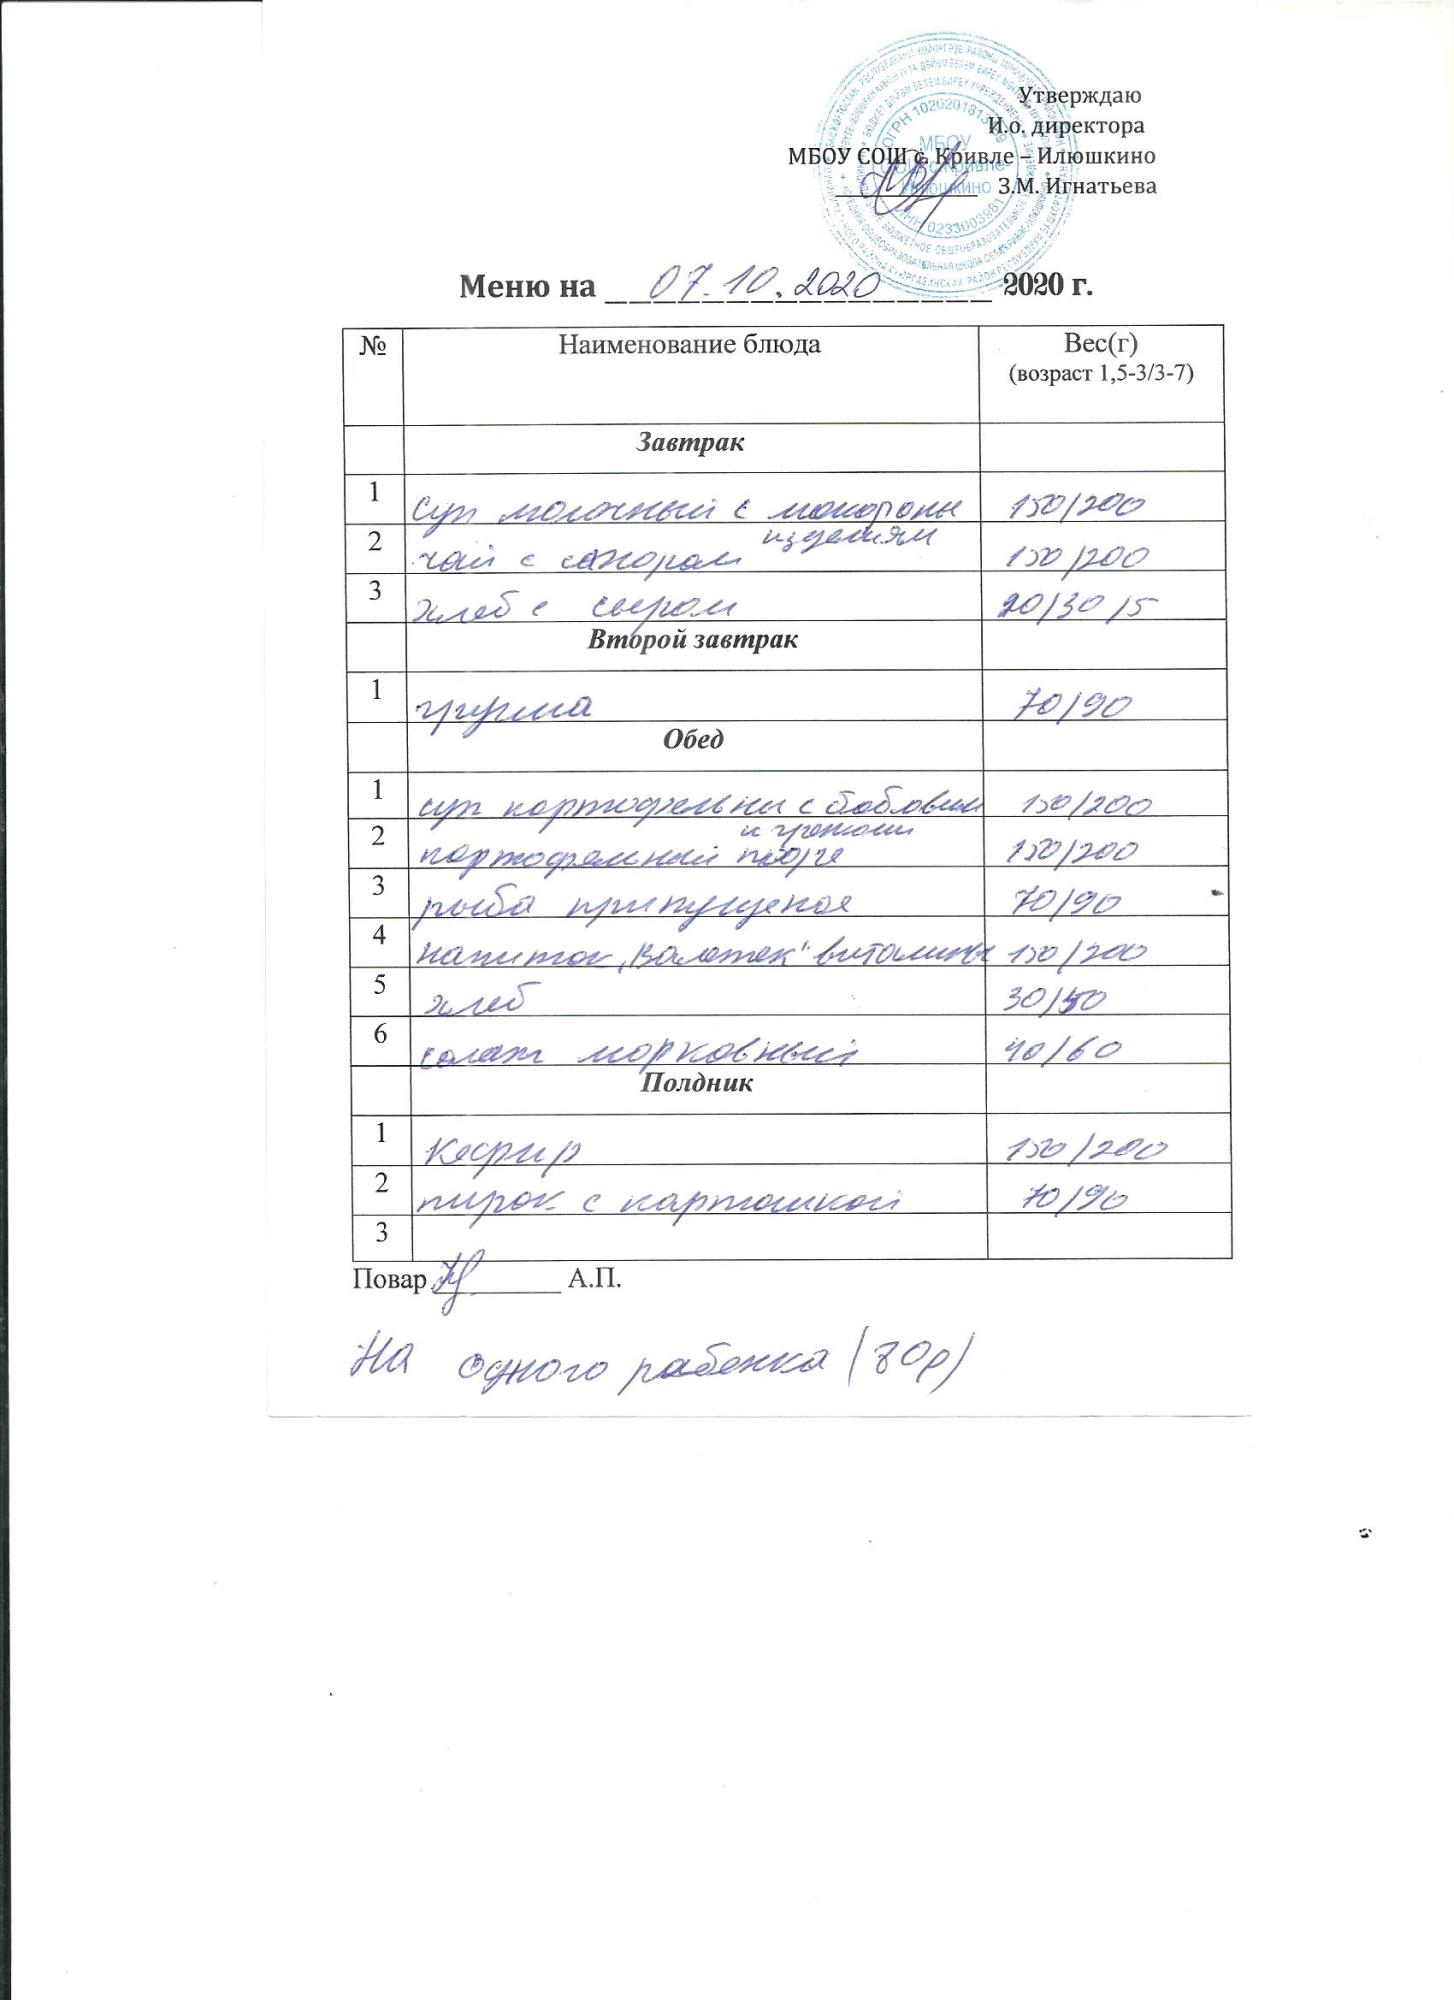 Утверждаю
И.о. директора
МБОУ СОШ с. Кривле – Илюшкино
З.М. Игнатьева
ОГРН 1020201813
МБОУ
СОШ с. Кривле-
Илюшкино
ИНН 0233003981
Меню на 07.10.2020 2020 г.
№ Наименование блюда Вес(г)
(возраст 1,5-3/3-7)
Завтрак
1 Суп молочный с макароны 150/200
изделиям
2 чай с сахором 150/200
3 хлеб с сыром 20/30/5
Второй завтрак
1 груша 70/90
Обед
1 суп картофельны с бобовым 150/200
и гренками
2 картофельный пюре 150/200
3 рыба припущеная 70/90
4 напиток „Валетек" витамины 150/200
5 хлеб 30/50
6 салат морковный 40/60
Полдник
1 Кефир 150/200
2 пирок с картошкой 70/90
3
Повар А.П.
На одного рабенка (80р)